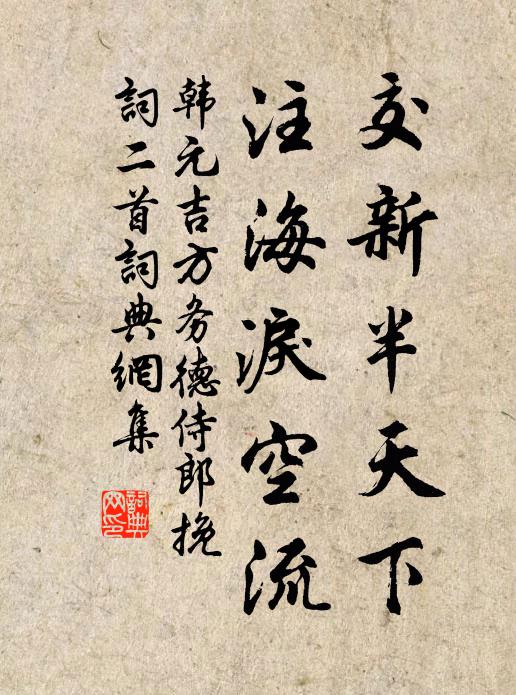 交新半天下
注海淚空流
韩元吉方务德侍郎挽
詞二首詞典網集
詞典网印